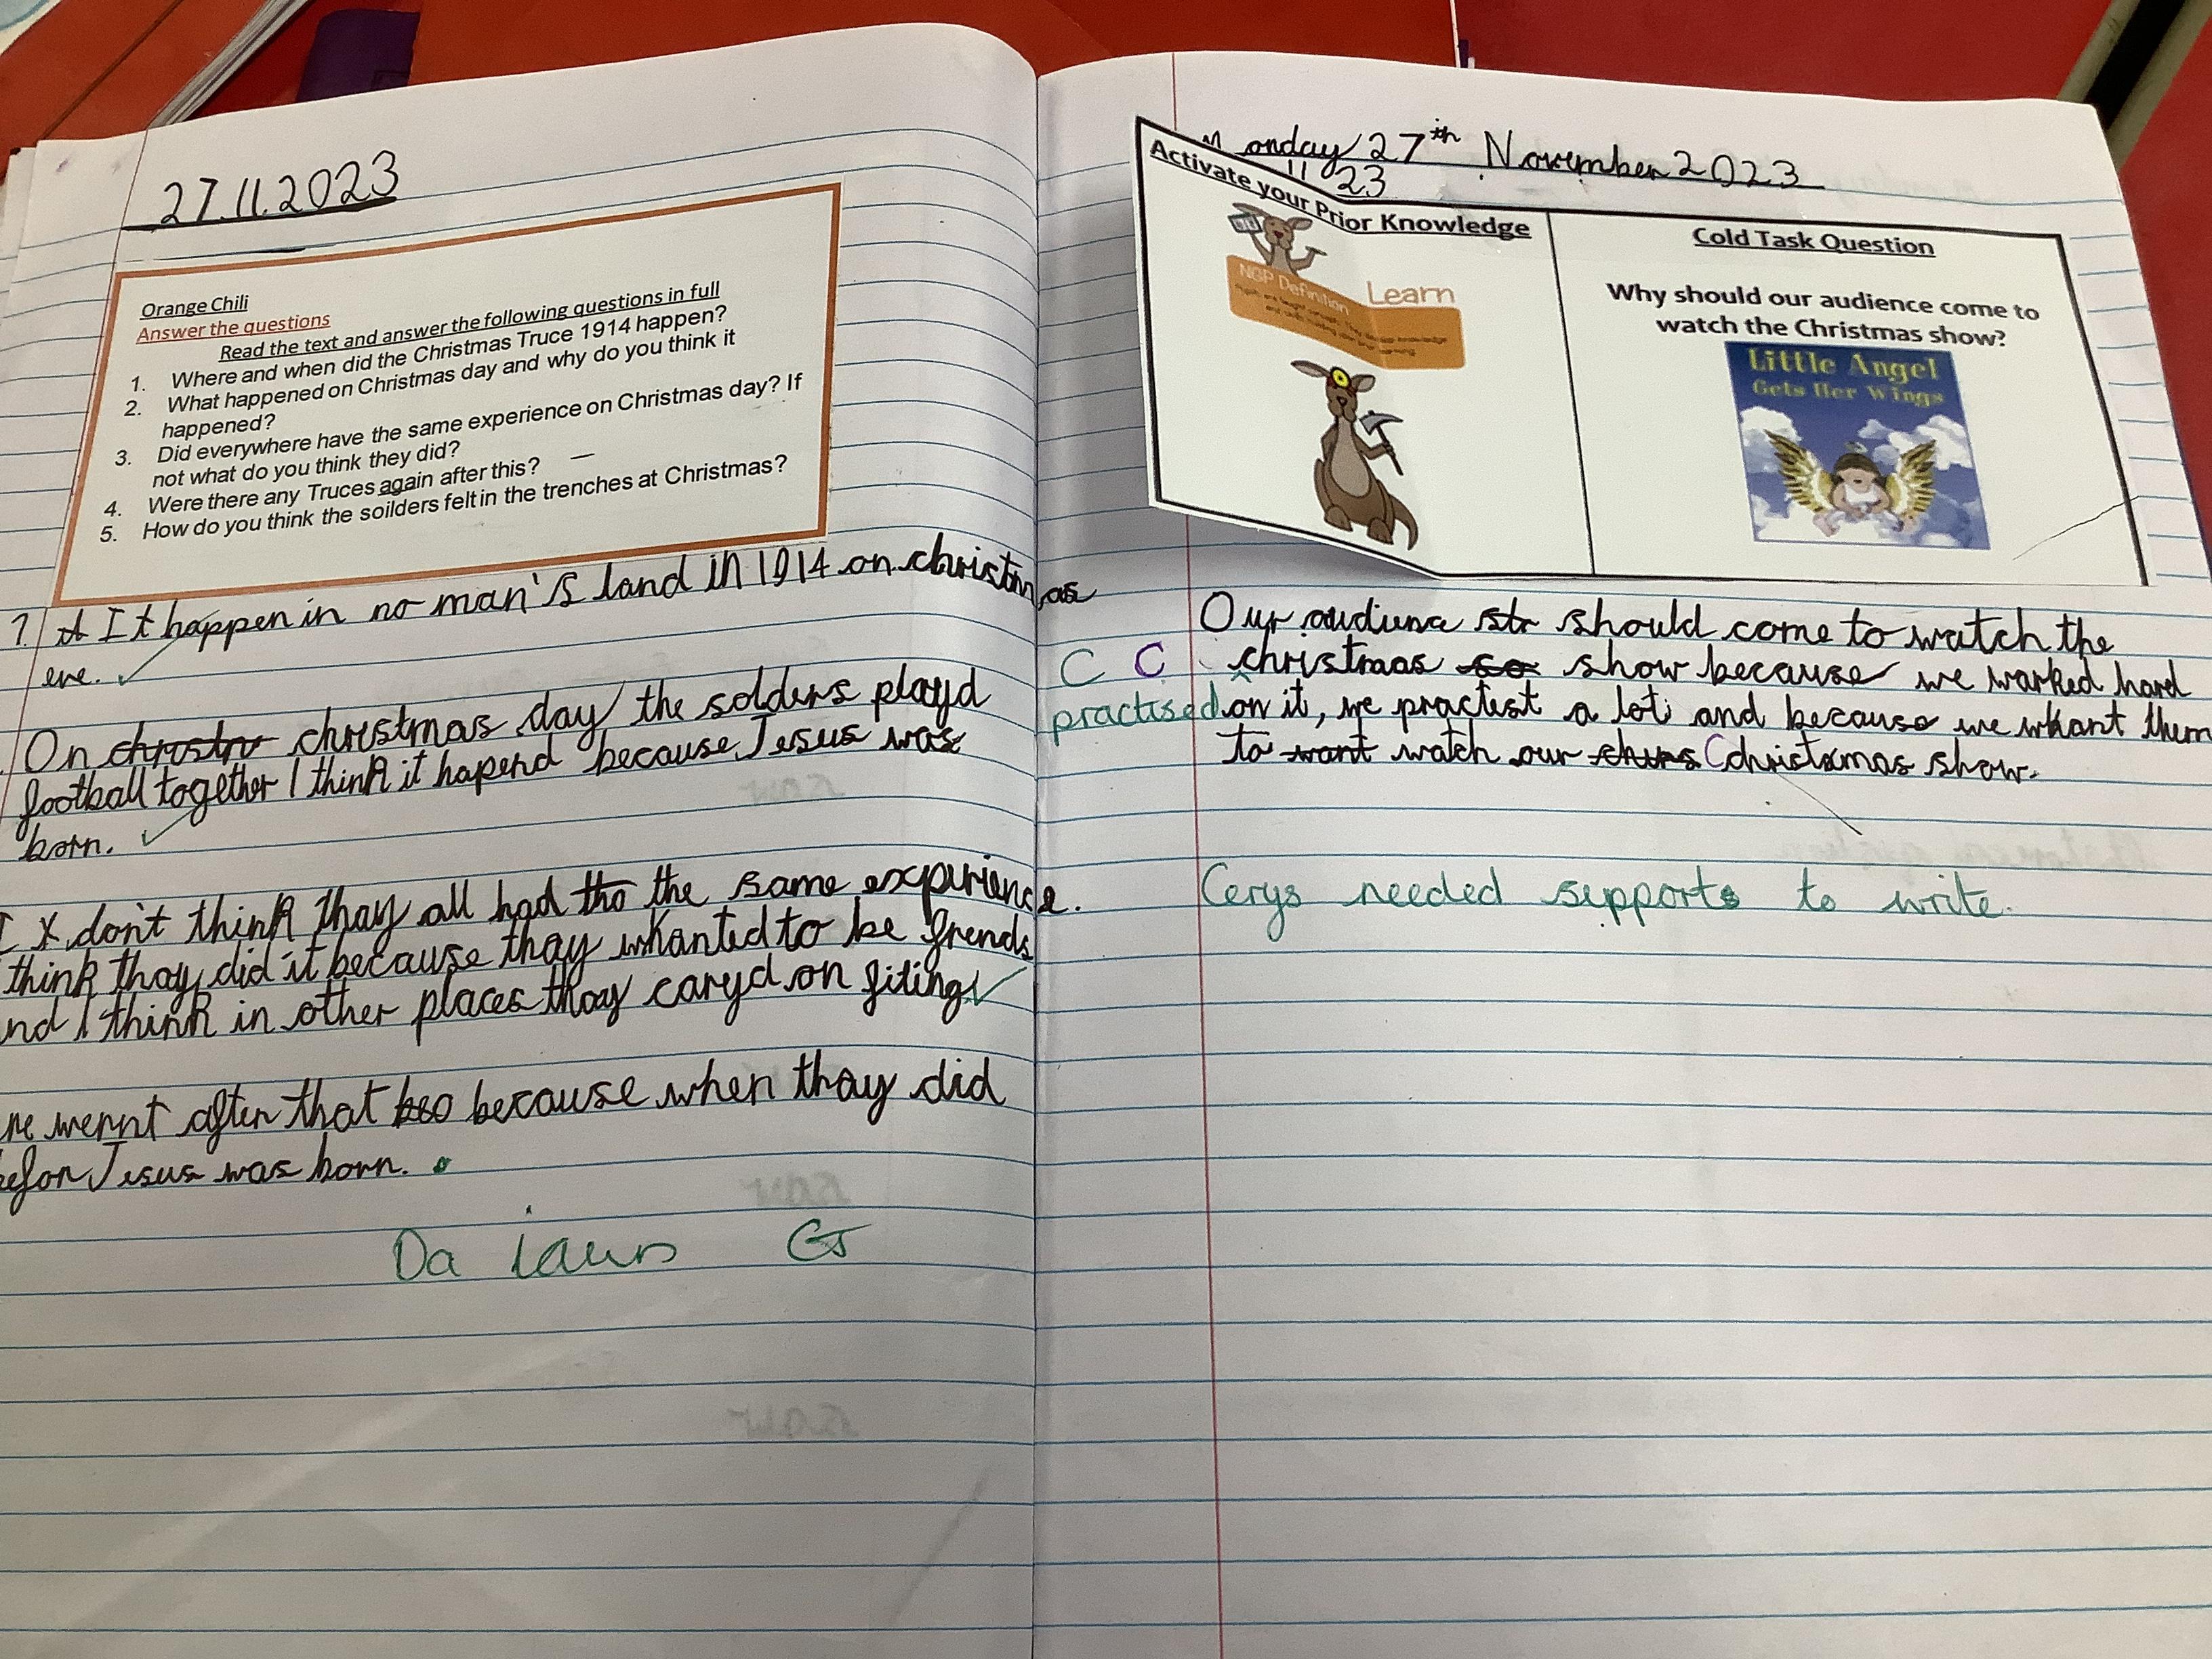 27.11.2023
Orange Chili
Answer the questions
Read the text and answer the following questions in full
1. Where and when did the Christmas Truce 1914 happen?
2. What happened on Christmas day and why do you think it
happened?
3. Did everywhere have the same experience on Christmas day? If
not what do you think they did?
4. Were there any Truces again after this?
5. How do you think the soilders felt in the trenches at Christmas?
1. It happen in no man's land in 1914 on christmas
eve.
On christmas day the solders playd
football together I think it hapend because Jesus was
born.
I don't think thay all had the same expurience.
think thay did it because thay whanted to be frends
nd I think in other places thay caryd on fiting
re wernt after that because when thay did
befor Jesus was born.
Da iawn
Monday 27th November 2023
11 23
Activate your Prior Knowledge
NGP Definition
Learn
Cold Task Question
Why should our audience come to
watch the Christmas show?
Little Angel
Gets Her Wings
Our audiena str should come to watch the
C C christmas so show because we warked hard
practised on it, we practest a lot and because we whant them
to want watch our Christmas show.
Cerys needed supports to write.